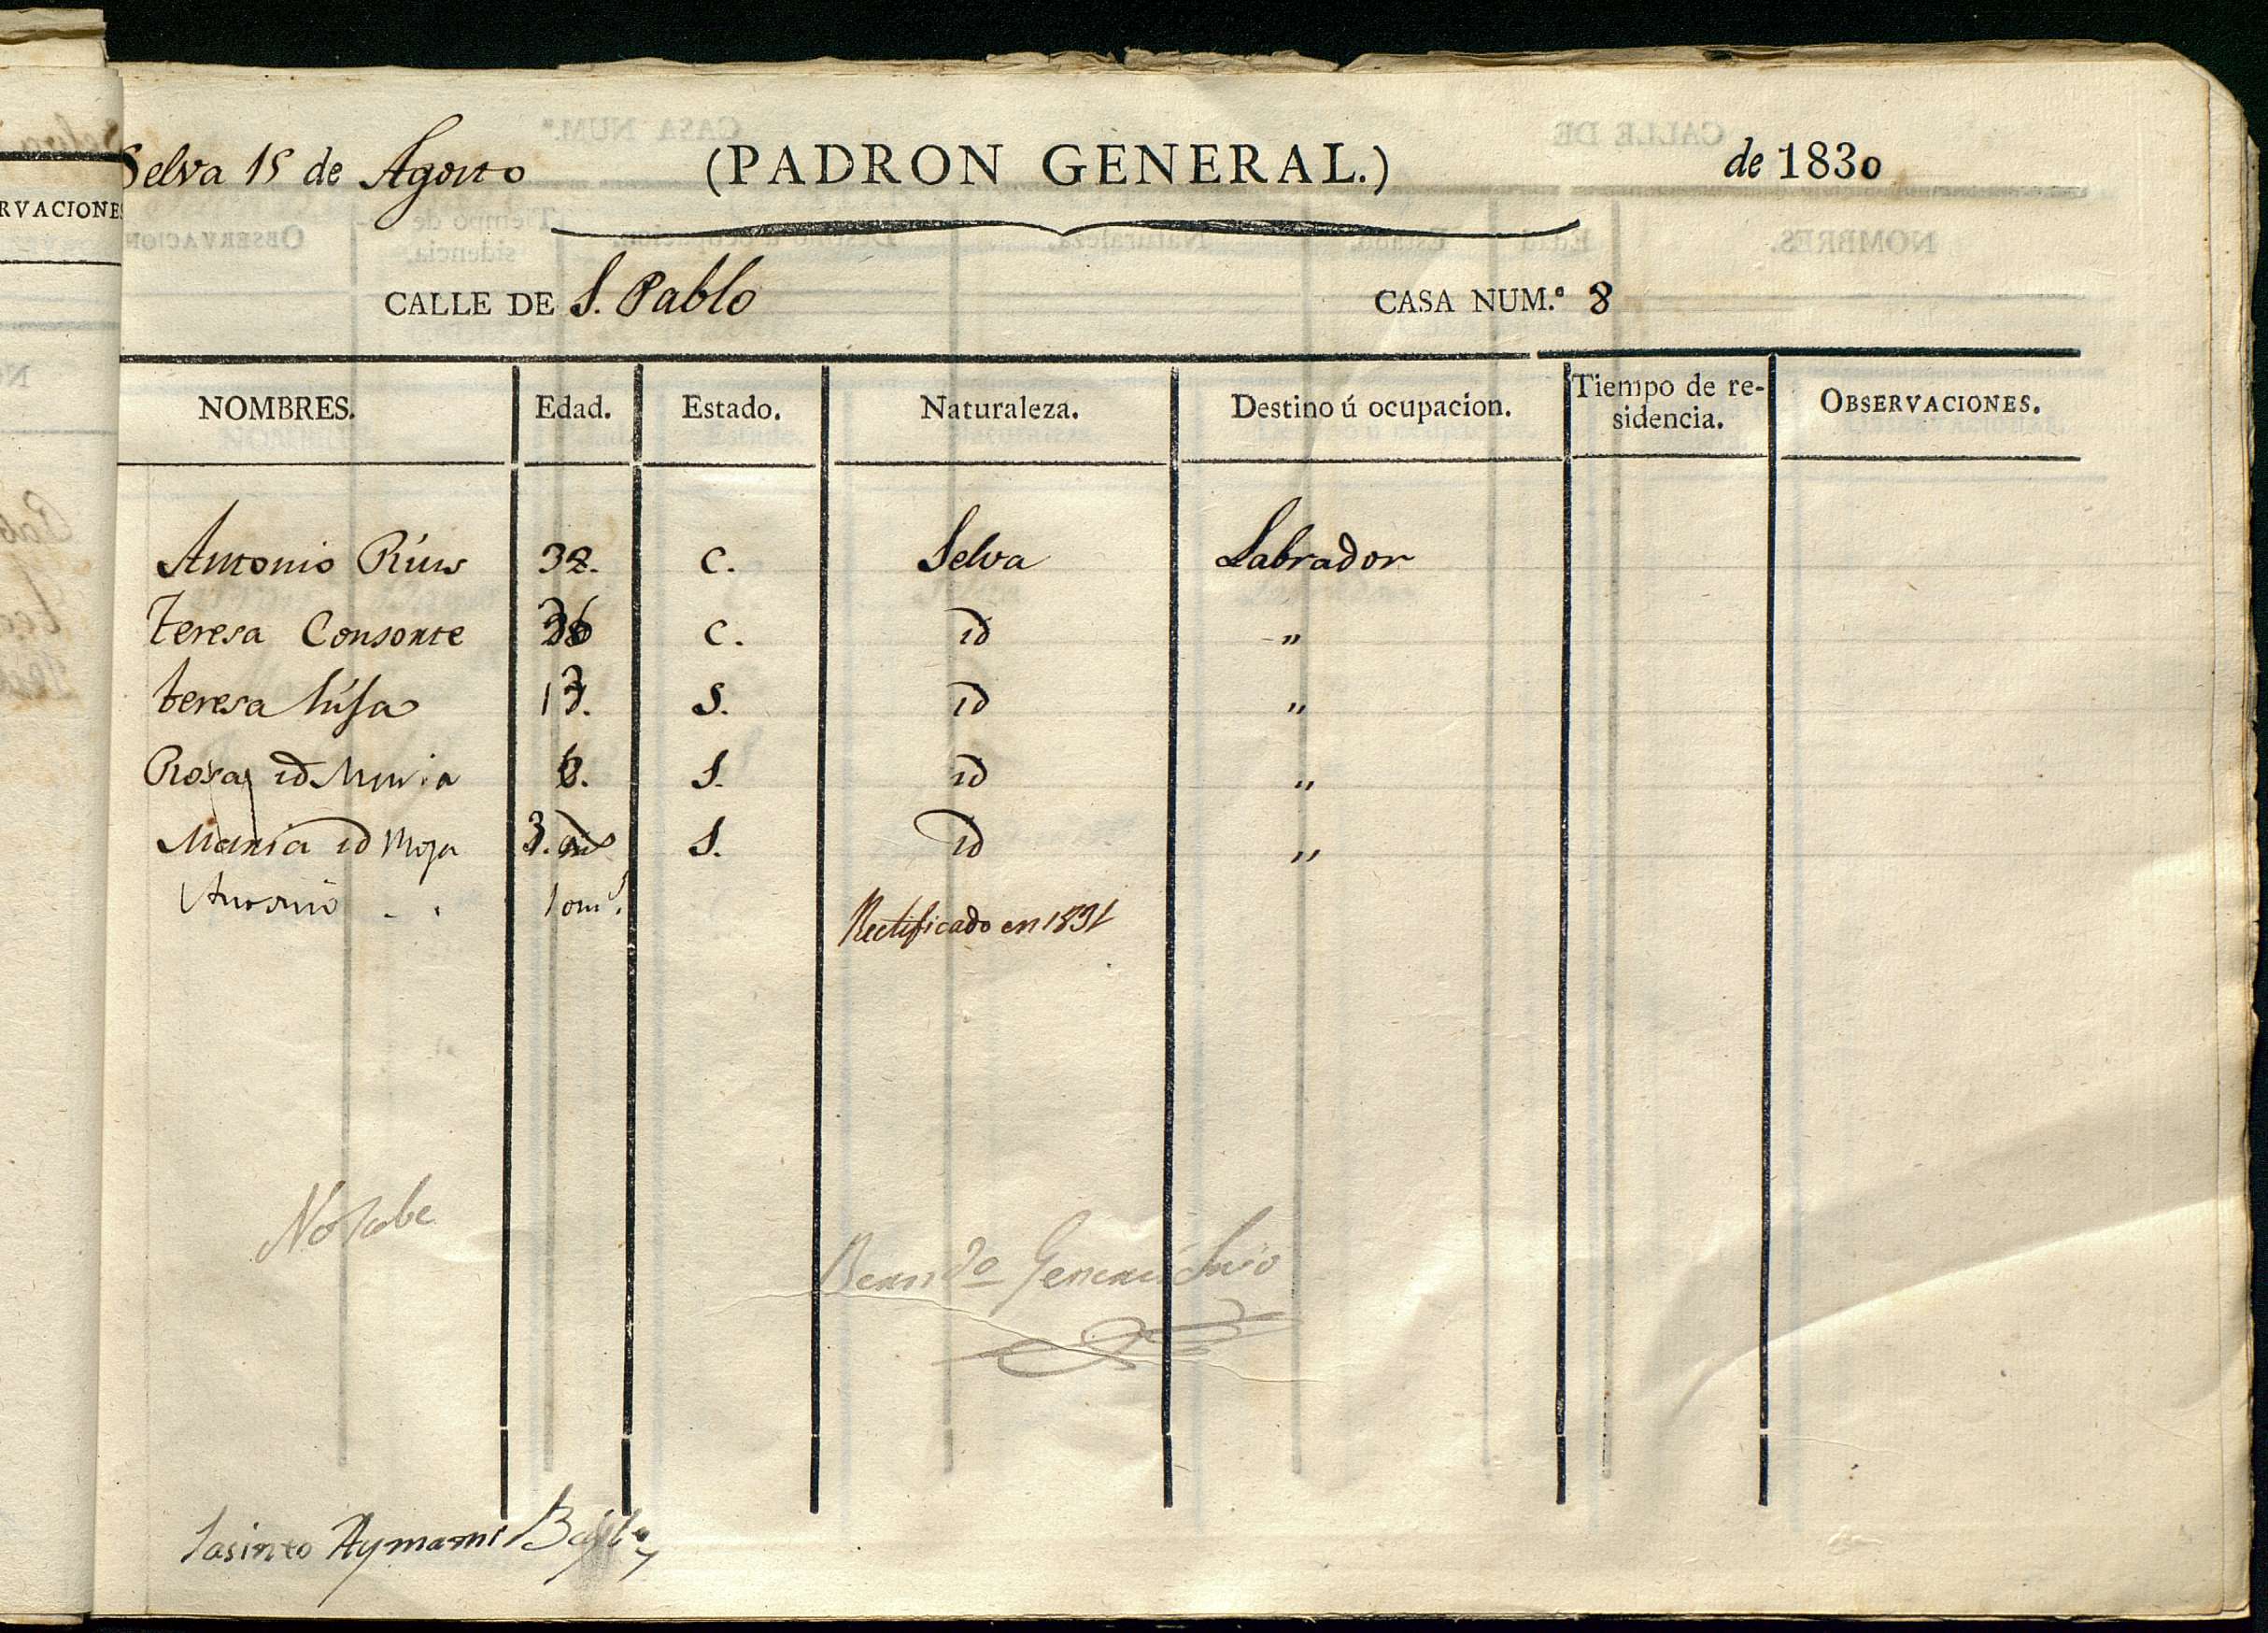 Selva 15 de Agosto (PADRON GENERAL.) de 1830
CALLE DE S. Pablo CASA NUM.º 8
NOMBRES. Edad. Estado. Naturaleza. Destino ú ocupacion. Tiempo de re-
sidencia. OBSERVACIONES.
Antonio Rius 32. C. Selva Labrador
Teresa Consonte 36 C. id "
teresa hija 13. S. id "
Rosa id S. id "
Maria id 3. S. id "
Antonio . . 1 om.s
Rectificado en 1831
No sabe
Jasinto Aymami Bayle